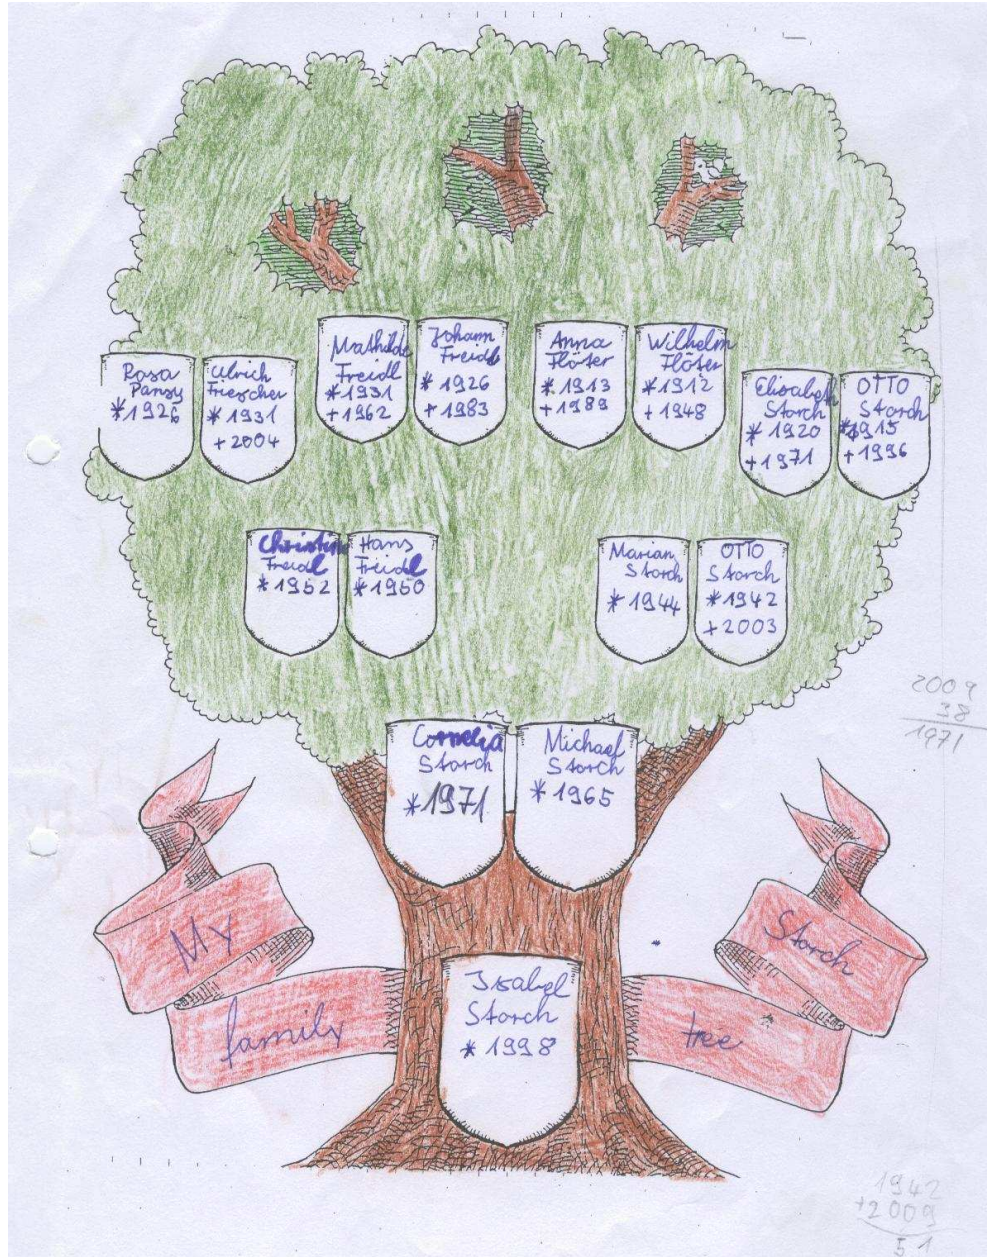 Rosa
Pansy
*1926
Ulrich
Friescher
*1931
+2004
Mathilde
Freidl
*1931
+1962
Johann
Freidl
*1926
+1983
Anna
Flöter
*1913
+1989
Wilhelm
Flöter
*1912
+1948
Elisabeth
Storch
*1920
+1971
OTTO
Storch
*1915
+1996
Christine
Freidl
*1952
Hans
Freidl
*1950
Marian
Storch
*1944
OTTO
Storch
*1942
+2003
2009
38
1971
Cornelia
Storch
*1971
Michael
Storch
*1965
My
family
tree
Storch
Isabel
Storch
*1998
1942
+2009
51